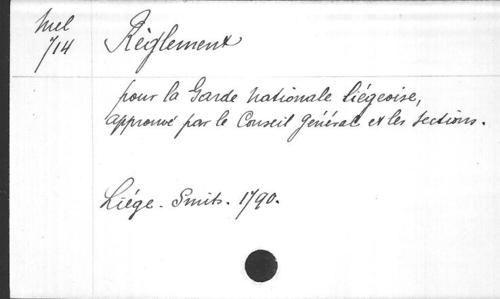 Mel
714
Règlement
pour la Garde Nationale Liégeoise,
approuvé par le Conseil Général et les Sections.
Liége. Smits. 1790.